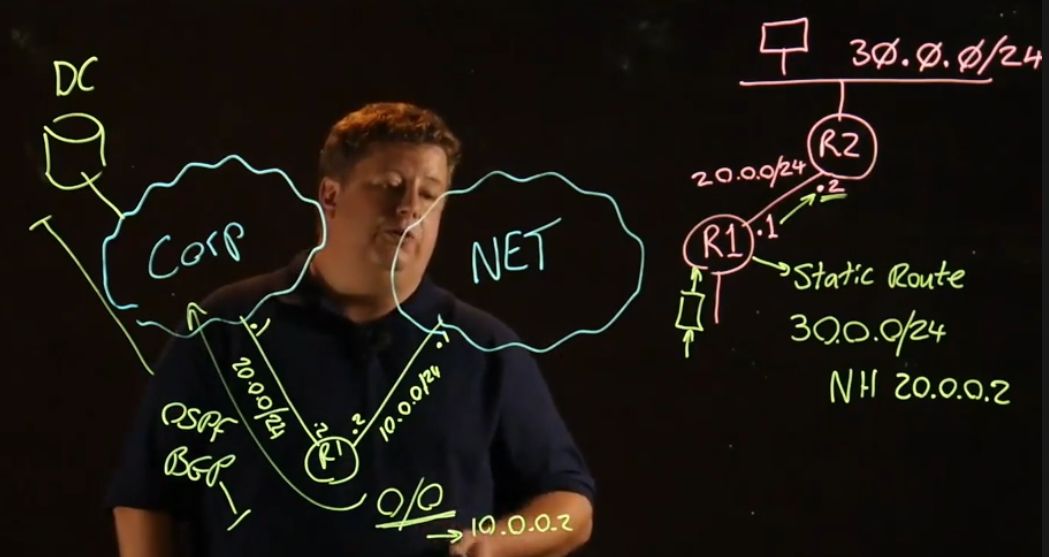 DC
Corp
NET
.1
.1
20.0.0/24
10.0.0/24
.2
.2
R1
OSPF
BGP
0/0
→ 10.0.0.2
30.0.0/24
R2
20.0.0/24
.2
.1
R1
Static Route
30.0.0/24
NH 20.0.0.2